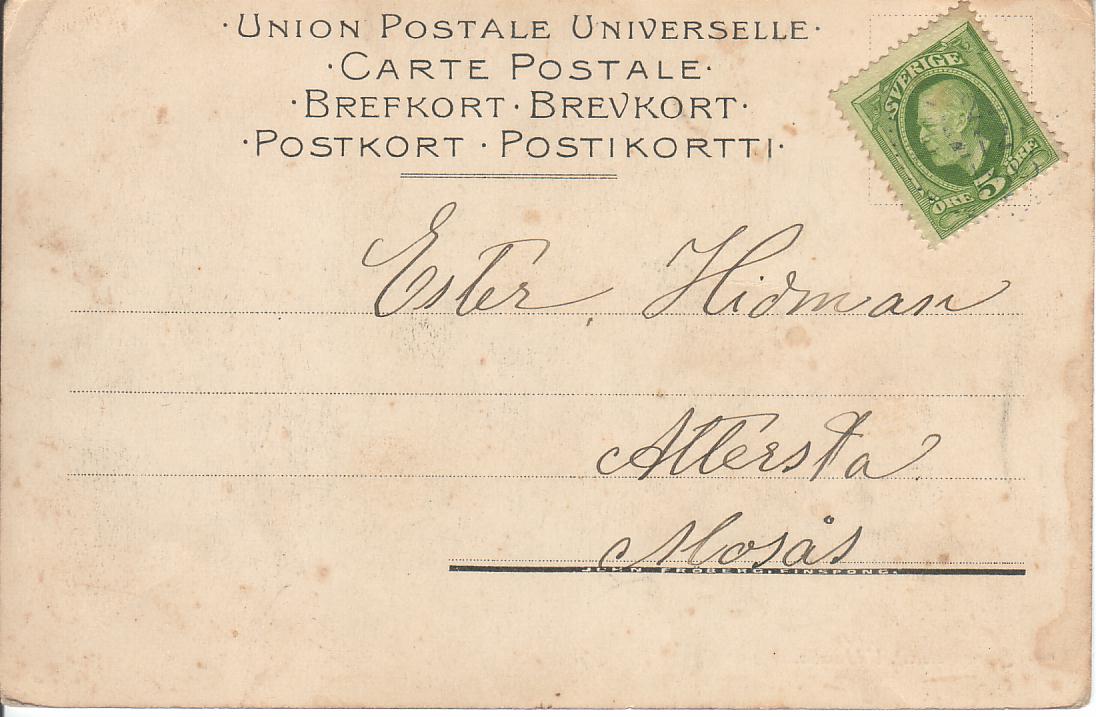 · UNION POSTALE UNIVERSELLE ·
· CARTE POSTALE ·
· BREFKORT · BREVKORT ·
· POSTKORT · POSTIKORTTI ·
SVERIGE
ÖRE 5 ÖRE
Ester, Hidman
Attersta
Mosås
JOHN FRÖBERG, FINSPONG.